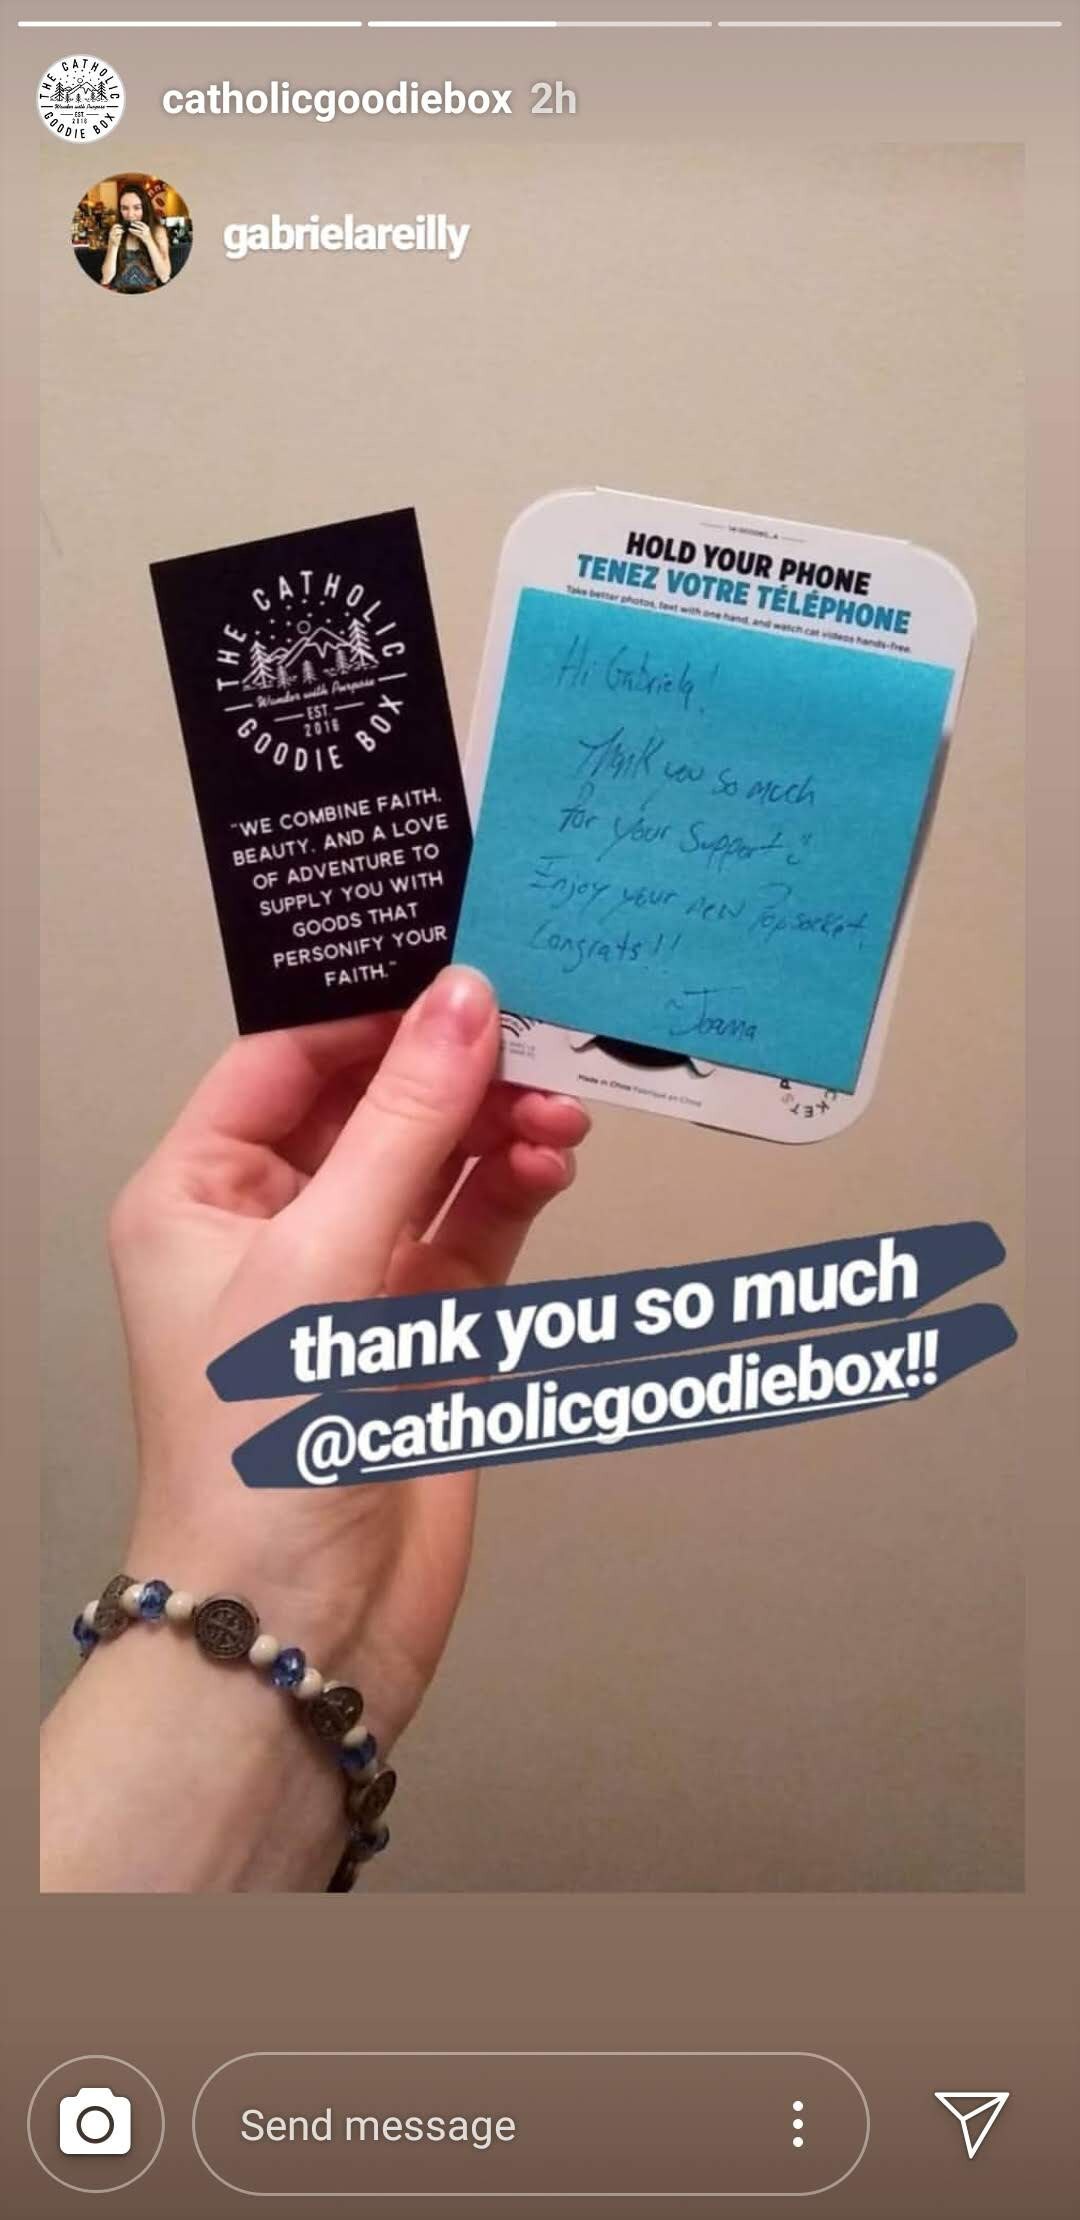 catholicgoodiebox 2h
THE CATHOLIC
Wander with Purpose
EST.
2016
GOODIE BOX
gabrielareilly
HOLD YOUR PHONE
TENEZ VOTRE TÉLÉPHONE
Take better photos, text with one hand, and watch cat videos hands-free.
THE CATHOLIC
Wander with Purpose
EST.
2016
GOODIE BOX
"WE COMBINE FAITH,
BEAUTY, AND A LOVE
OF ADVENTURE TO
SUPPLY YOU WITH
GOODS THAT
PERSONIFY YOUR
FAITH."
Hi Gabriela!
Thank you so much
for your support
Enjoy your new Popsocket,
Congrats!!
~Joanna
Made in China Fabriqué en Chine
thank you so much
@catholicgoodiebox!!
Send message